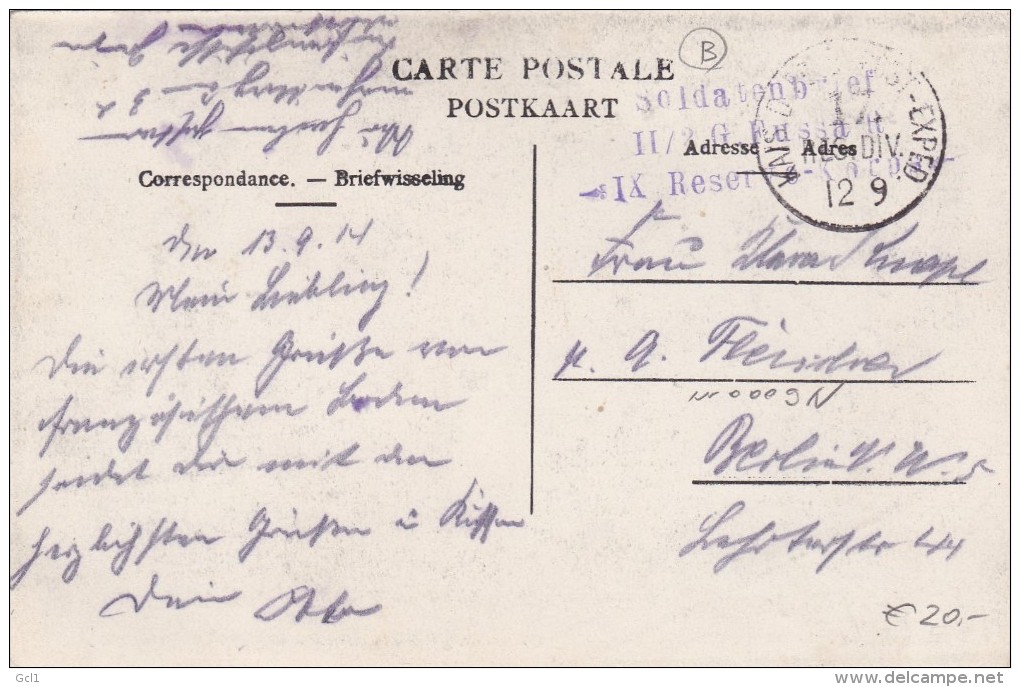 CARTE POSTALE
POSTKAART
Correspondance. — Briefwisseling
Adresse — Adres
Soldatenbrief
II/2 G Fussa
IX Reserve-Korps
KAIS. D. -EXPED
RES. DIV.
12 9
B
Den 13.9.14
Mein Liebling!
Die ersten Grüße von
französischem Boden
sendet Dir mit den
herzlichsten Grüßen u Küssen
Dein Otto
Wir haben gestern
Frau Clara
p. A.
nr 0009N
Berlin N. W. 5
Lehrterstr 44
€ 20,-
Gcl1